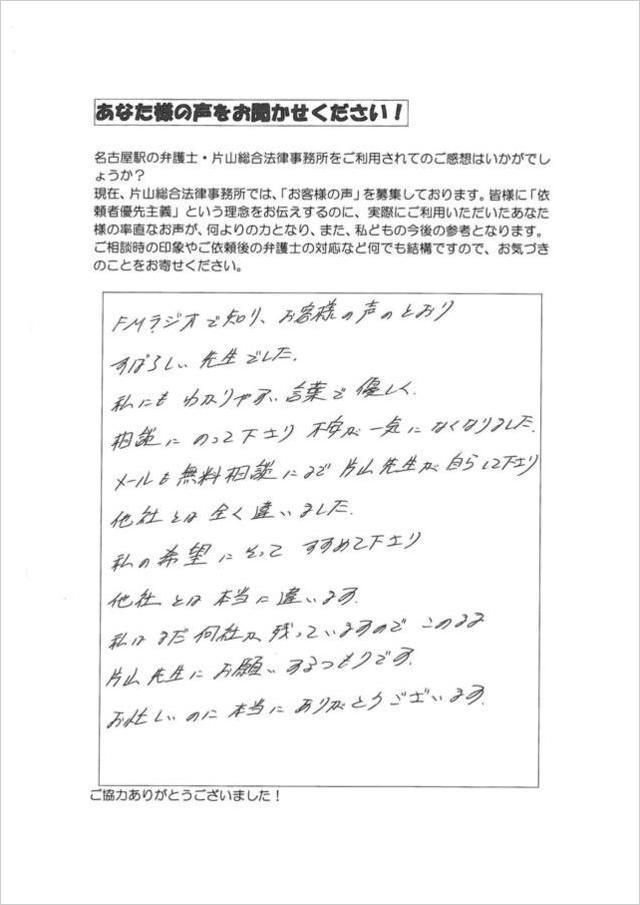 あなた様の声をお聞かせください！
名古屋駅の弁護士・片山総合法律事務所をご利用されてのご感想はいかがでし
ょうか？
現在、片山総合法律事務所では、「お客様の声」を募集しております。皆様に「依
頼者優先主義」という理念をお伝えするのに、実際にご利用いただいたあなた
様の率直なお声が、何よりの力となり、また、私どもの今後の参考となります。
ご相談時の印象やご依頼後の弁護士の対応など何でも結構ですので、お気づき
のことをお寄せください。
FMラジオで知り、お客様の声のとおり
すばらしい先生でした。
私にもわかりやすい言葉で優しく、
相談にのって下さり不安が一気になくなりました。
メールも無料相談にまで片山先生が自らして下さり
他社とは全く違いました。
私の希望にそってすすめて下さり
他社とは本当に違います。
私はまだ何社か残っていますのでこのまま
片山先生にお願いするつもりです。
お忙しいのに本当にありがとうございます。
ご協力ありがとうございました！